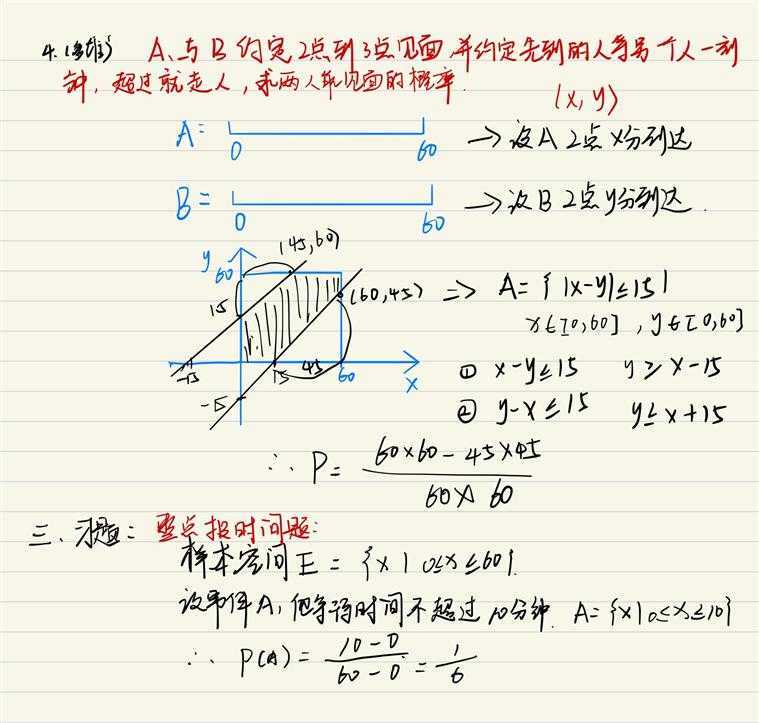 4.(多维) A、与B约定2点到3点见面,并约定先到的人等另一个人一刻
钟,超过就走人,求两人能见面的概率.
(x, y)
A= 0 60 → 设A 2点x分到达
B= 0 60 → 设B 2点y分到达.
(45,60)
y 60
15 (60,45) => A={ |x-y|≤15}
x∈[0,60] , y∈[0,60]
-15 15 45 60 x ① x-y≤15 y≥x-15
-15 ② y-x≤15 y≤x+15
∴ P= 60×60-45×45 / 60×60
三、习题: 整点报时问题:
样本空间E = {x | 0≤x≤60}.
设事件A,他等待时间不超过10分钟. A={x|0≤x≤10}
∴ P(A) = 10-0 / 60-0 = 1/6